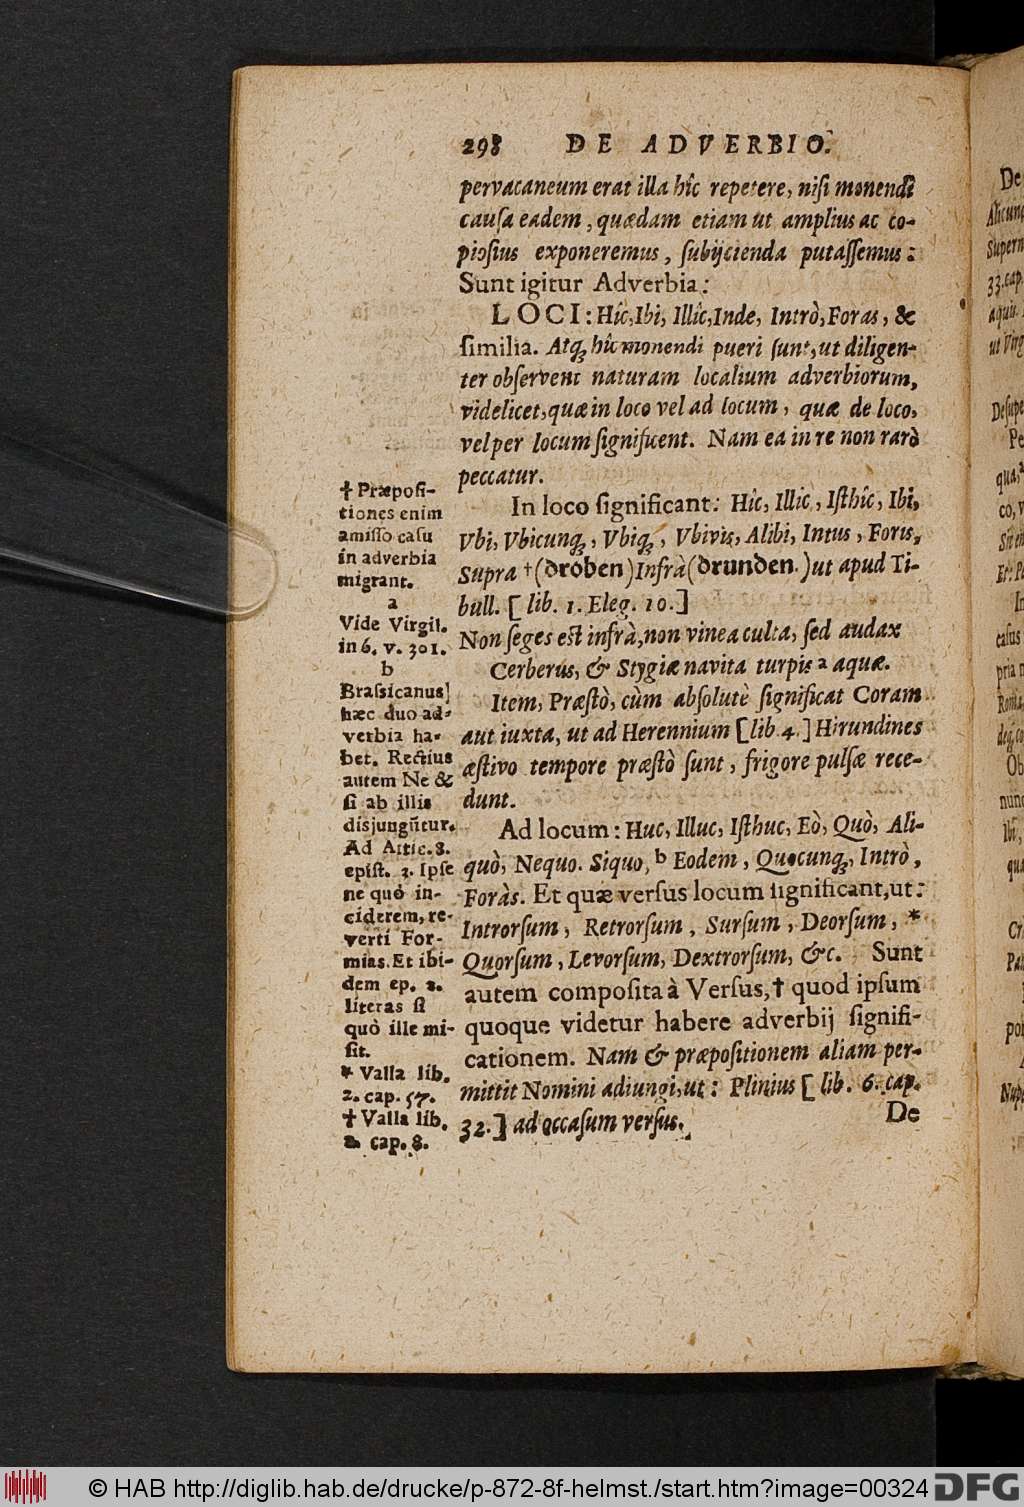 298 DE ADVERBIO.
pervacaneum erat illa hîc repetere, nisi monendi
causa eadem, quædam etiam ut amplius ac co-
piosius exponeremus, subijcienda putassemus:
Sunt igitur Adverbia:
LOCI: Hîc, Ibi, Illîc, Inde, Intrò, Foras, &
similia. Atq; hîc monendi pueri sunt, ut diligen-
ter observent naturam localium adverbiorum,
videlicet, quæ in loco vel ad locum, quæ de loco,
vel per locum significent. Nam ea in re non rarò
peccatur.
In loco significant: Hîc, Illîc, Isthîc, Ibi,
Vbi, Vbicunq;, Vbiq;, Vbivis, Alibi, Intus, Foris,
Supra † (droben) Infrà (drunden.) ut apud Ti-
bull. [lib. 1. Eleg. 10.]
Non seges est infrà, non vinea culta, sed audax
Cerberus, & Stygiæ navita turpis a aquæ.
Item, Præstò, cùm absolutè significat Coram
aut iuxta, ut ad Herennium [lib. 4.] Hirundines
æstivo tempore præstò sunt, frigore pulsæ rece-
dunt.
Ad locum: Huc, Illuc, Isthuc, Eò, Quò, Ali-
quò, Nequo. Siquo, b Eodem, Quocunq;, Intrò,
Foràs. Et quæ versus locum significant, ut:
Introrsum, Retrorsum, Sursum, Deorsum, *
Quorsum, Levorsum, Dextrorsum, &c. Sunt
autem composita à Versus, † quod ipsum
quoque videtur habere adverbij signifi-
cationem. Nam & præpositionem aliam per-
mittit Nomini adiungi, ut: Plinius [lib. 6. cap.
32.] ad occasum versus.
De
† Præposi-
tiones enim
amisso casu
in adverbia
migrant.
a
Vide Virgil.
in 6. v. 301.
b
Brassicanus
hæc duo ad-
verbia ha-
bet. Rectius
autem Ne &
si ab illis
disjungũtur.
Ad Attic. 8.
epist. 3. Ipse
ne quò in-
ciderem, re-
verti For-
mias. Et ibi-
dem ep. 2.
literas si
quò ille mi-
sit.
* Valla lib.
2. cap. 57.
† Valla lib.
2. cap. 8.
© HAB http://diglib.hab.de/drucke/p-872-8f-helmst./start.htm?image=00324
DFG